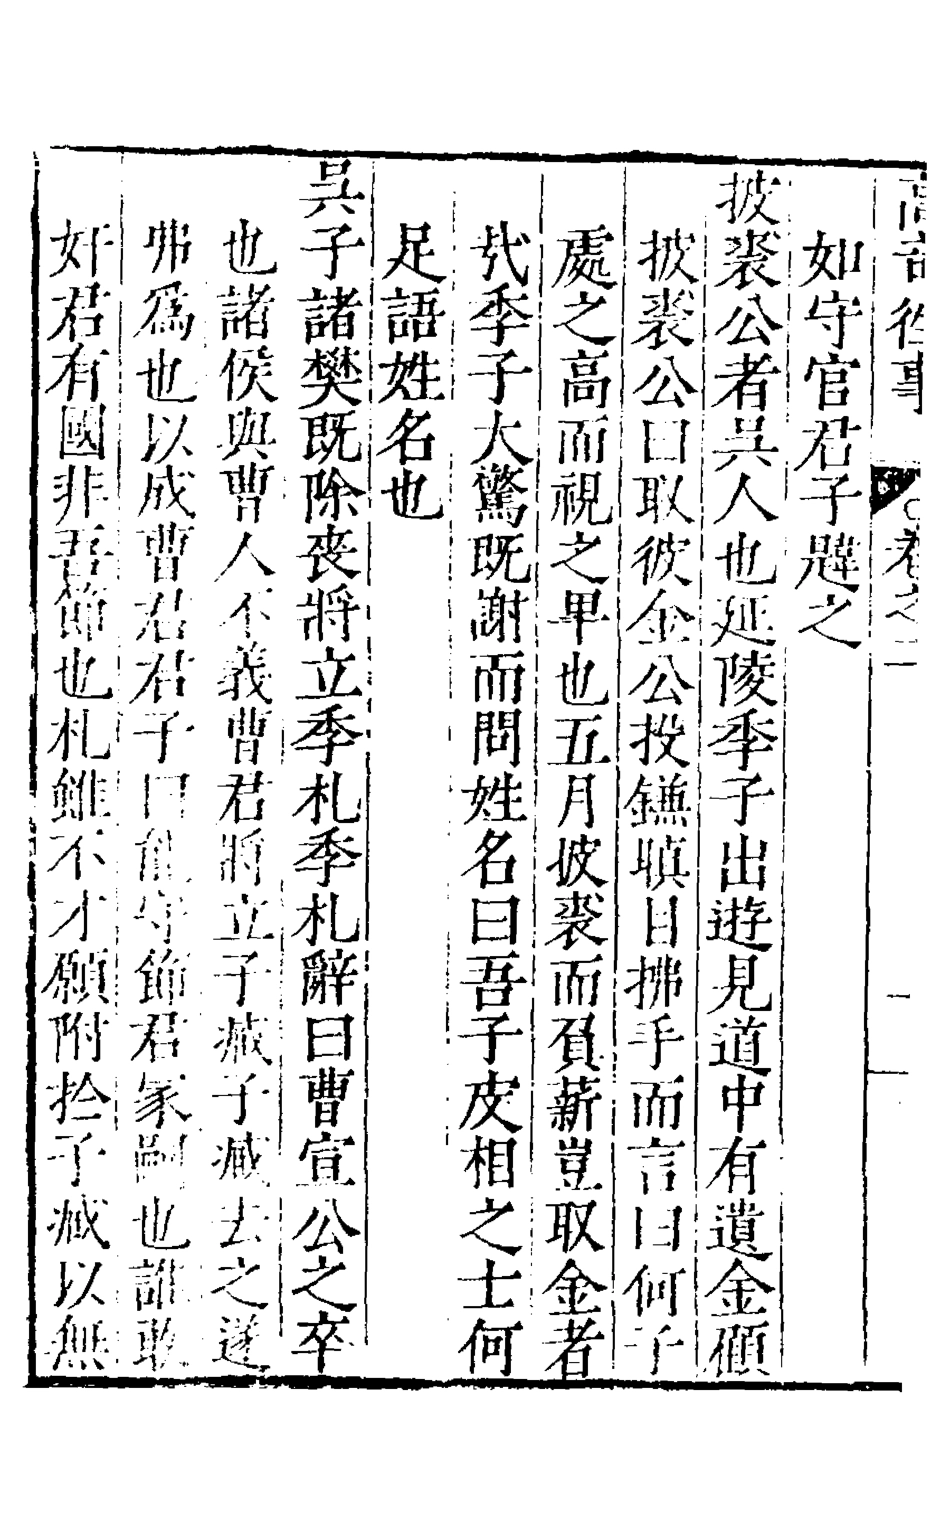 高奇往事 卷之二 一
如守官君子韙之
披裘公者吳人也延陵季子出遊見道中有遺金顧
披裘公曰取彼金公投鎌瞋目拂手而言曰何子
處之高而視之卑也五月披裘而負薪豈取金者
哉季子大驚既謝而問姓名曰吾子皮相之士何
足語姓名也
吳子諸樊既除喪將立季札季札辭曰曹宣公之卒
也諸侯與曹人不義曹君將立子臧子臧去之遂
弗爲也以成曹君君子曰能守節君冢嗣也誰敢
奸君有國非吾節也札雖不才願附於子臧以無